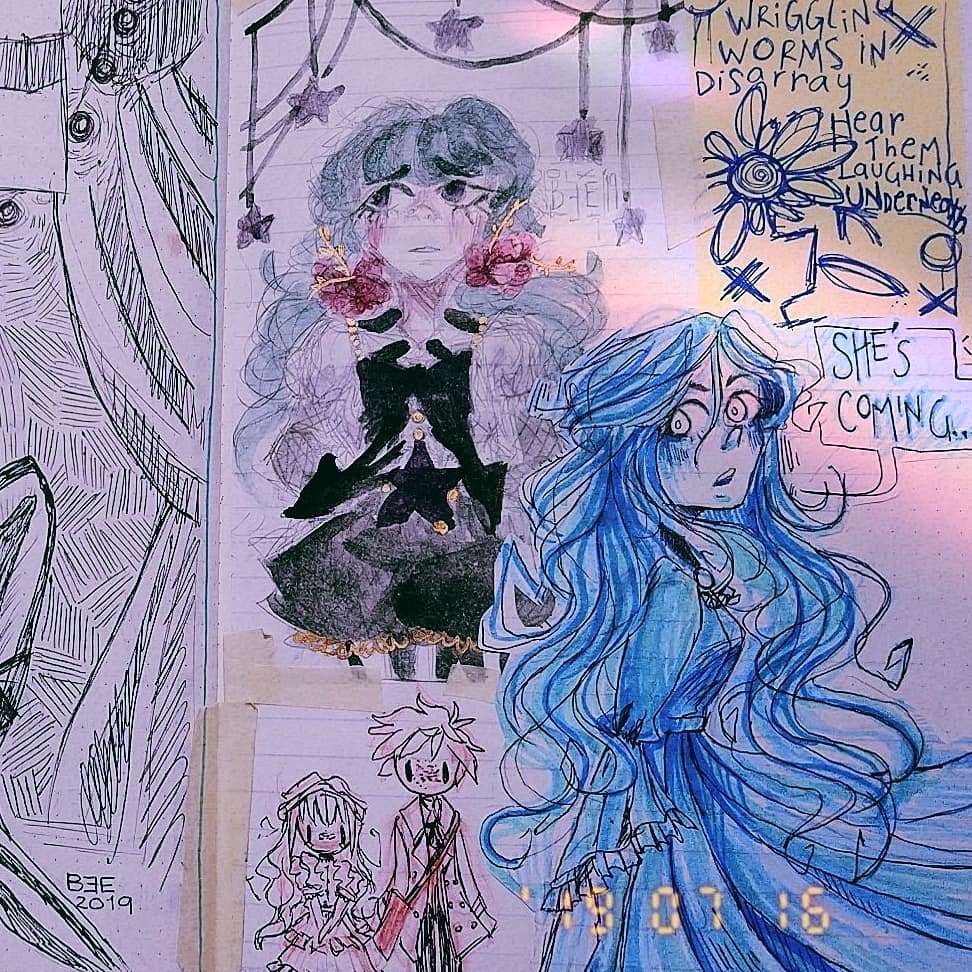 WRIGGLIN
WORMS IN
DISarray
Hear
THEM
LAUGHING
UNDERNeath
BƎE
SHE'S
COMING...
BƎE
2019
'19 07 16